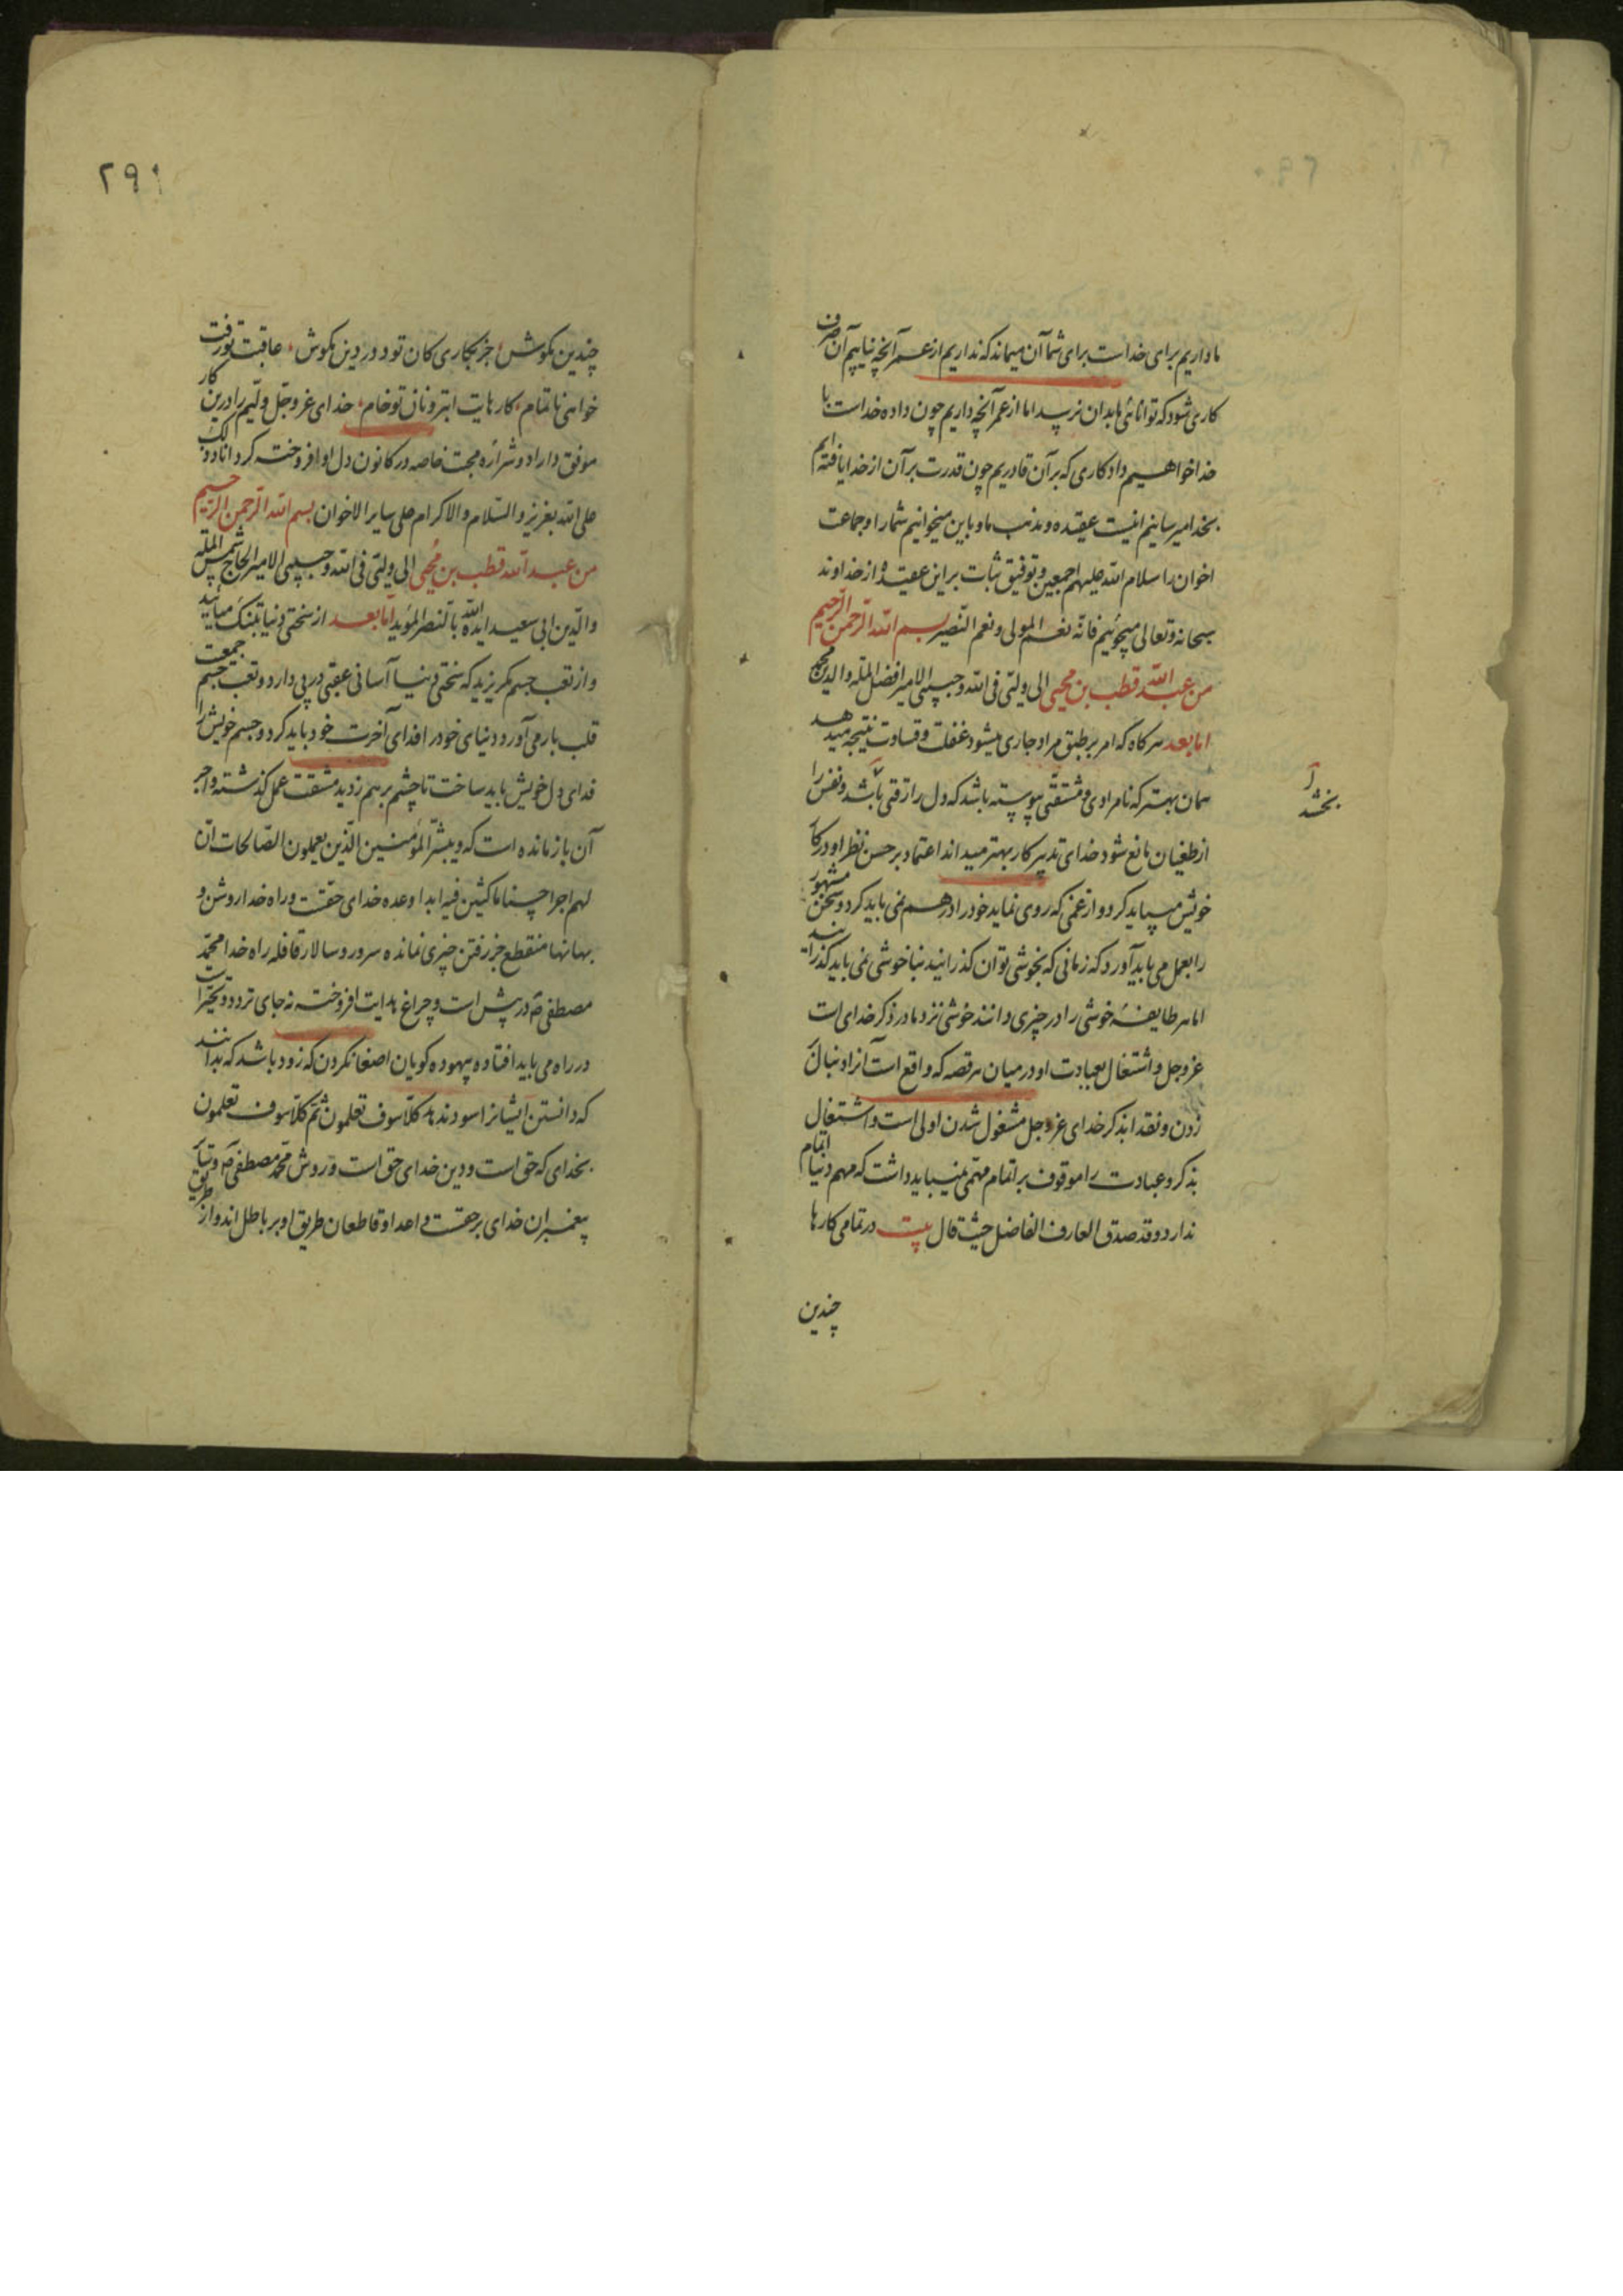 ما داریم برای خداست برای شما آن میماند که نداریم از عمر آنچه نیابیم آن صرف
کاری شود که توانائی ما بدان نرسد اما از عمر آنچه داریم چون داده خداست با
خدا خواهیم داد کاری که بر آن قادریم چون قدرت بر آن از خدا یافته ایم
بخدا میرسانیم اینست عقیده و مذهب ما و باین میخوانیم شما را و جماعت
اخوان را سلام الله علیهم اجمعین و توفیق ثبات بر این عقیده از خداوند
سبحانه و تعالی میجوئیم فانه نعم المولی و نعم النصیر بسم الله الرحمن الرحیم
من عبد الله قطب بن محیی الی ولیّی فی الله و حبیبی الامیر افضل المله والدین محمد
اما بعد هر کاه که امر بر طبق مراد جاری میشود غفلت و قساوت نتیجه میدهد
همان بهتر که نامرادی و مشقتی پیوسته باشد که دل را رقتی باشد و نفس را
بخشد
از طغیان مانع شود خدای تدبیر کار بهتر میداند اعتماد بر حسن نظر او در کار
خویش میباید کرد و از غمی که روی نماید خود را درهم نمی باید کرد و سخن مشهور
را بعمل می باید آورد که زمانی که بخوشی توان کذرانید بناخوشی نمی باید کذرانید
اما هر طایفهٔ خوشی را در چیزی دانند خوشی نزد ما در ذکر خدای است
عز و جل و اشتغال بعبادت او در میان هر قصه که واقع است آنرا دنبال
زدن و نقدا بذکر خدای عز و جل مشغول شدن اولی است و اشتغال
بذکر و عبادت را موقوف بر اتمام مهمی نمیباید داشت که مهم دنیا اتمام
ندارد و قد صدق العارف الفاضل حیث قال بیت در تمامی کارها
چندین
۲۹۱
چندین مکوش جز بکاری کان تود در دین مکوش عاقبت تو رفت
خواهی ناتمام کارهایت ابتر و نان تو خام خدای عز و جل ولیّم را درین کار
موفق داراد و شراره محبت خاصه در کانون دل او افروخته کرداناد و ذلک
علی الله بعزیز و السلام و الاکرام علی سایر الاخوان بسم الله الرحمن الرحیم
من عبد الله قطب بن محیی الی ولیّی فی الله و حبیبی الامیر الحاج شمس المله
والدین ابی سعید ایده الله بالنصر المؤید اما بعد از سختی دنیا بتنک میائید
و از تعب جسم مکریزید که سختی دنیا آسانی عقبی در پی دارد و تعب جسم جمعیت
قلب بار می آورد دنیای خود را فدای آخرت خود باید کرد و جسم خویش را
فدای دل خویش باید ساخت تا چشم بر هم زدید مشقت عمل کذشته و اجر
آن باز مانده است که و یبشر المؤمنین الذین یعملون الصالحات ان
لهم اجرا حسنا ماکثین فیه ابدا وعده خدای حقست و راه خدا روشن و
بهانها منقطع جز رفتن چیزی نمانده سرور و سالار قافله راه خدا محمد
مصطفی ص در پیش است و چراغ هدایت افروخته نه جای تردد و تحیر است
در راه می باید افتاد و بیهوده کویان اصغا نکردن که زود باشد که بدانند
که دانستن ایشانرا سود ندهد کلا سوف تعلمون ثم کلا سوف تعلمون
بخدای که حق است و دین خدای حق است و روش محمد مصطفی ص و سایر
پیغمبران خدای بر حقست و اعدا و قاطعان طریق او بر باطل اند و از طریق